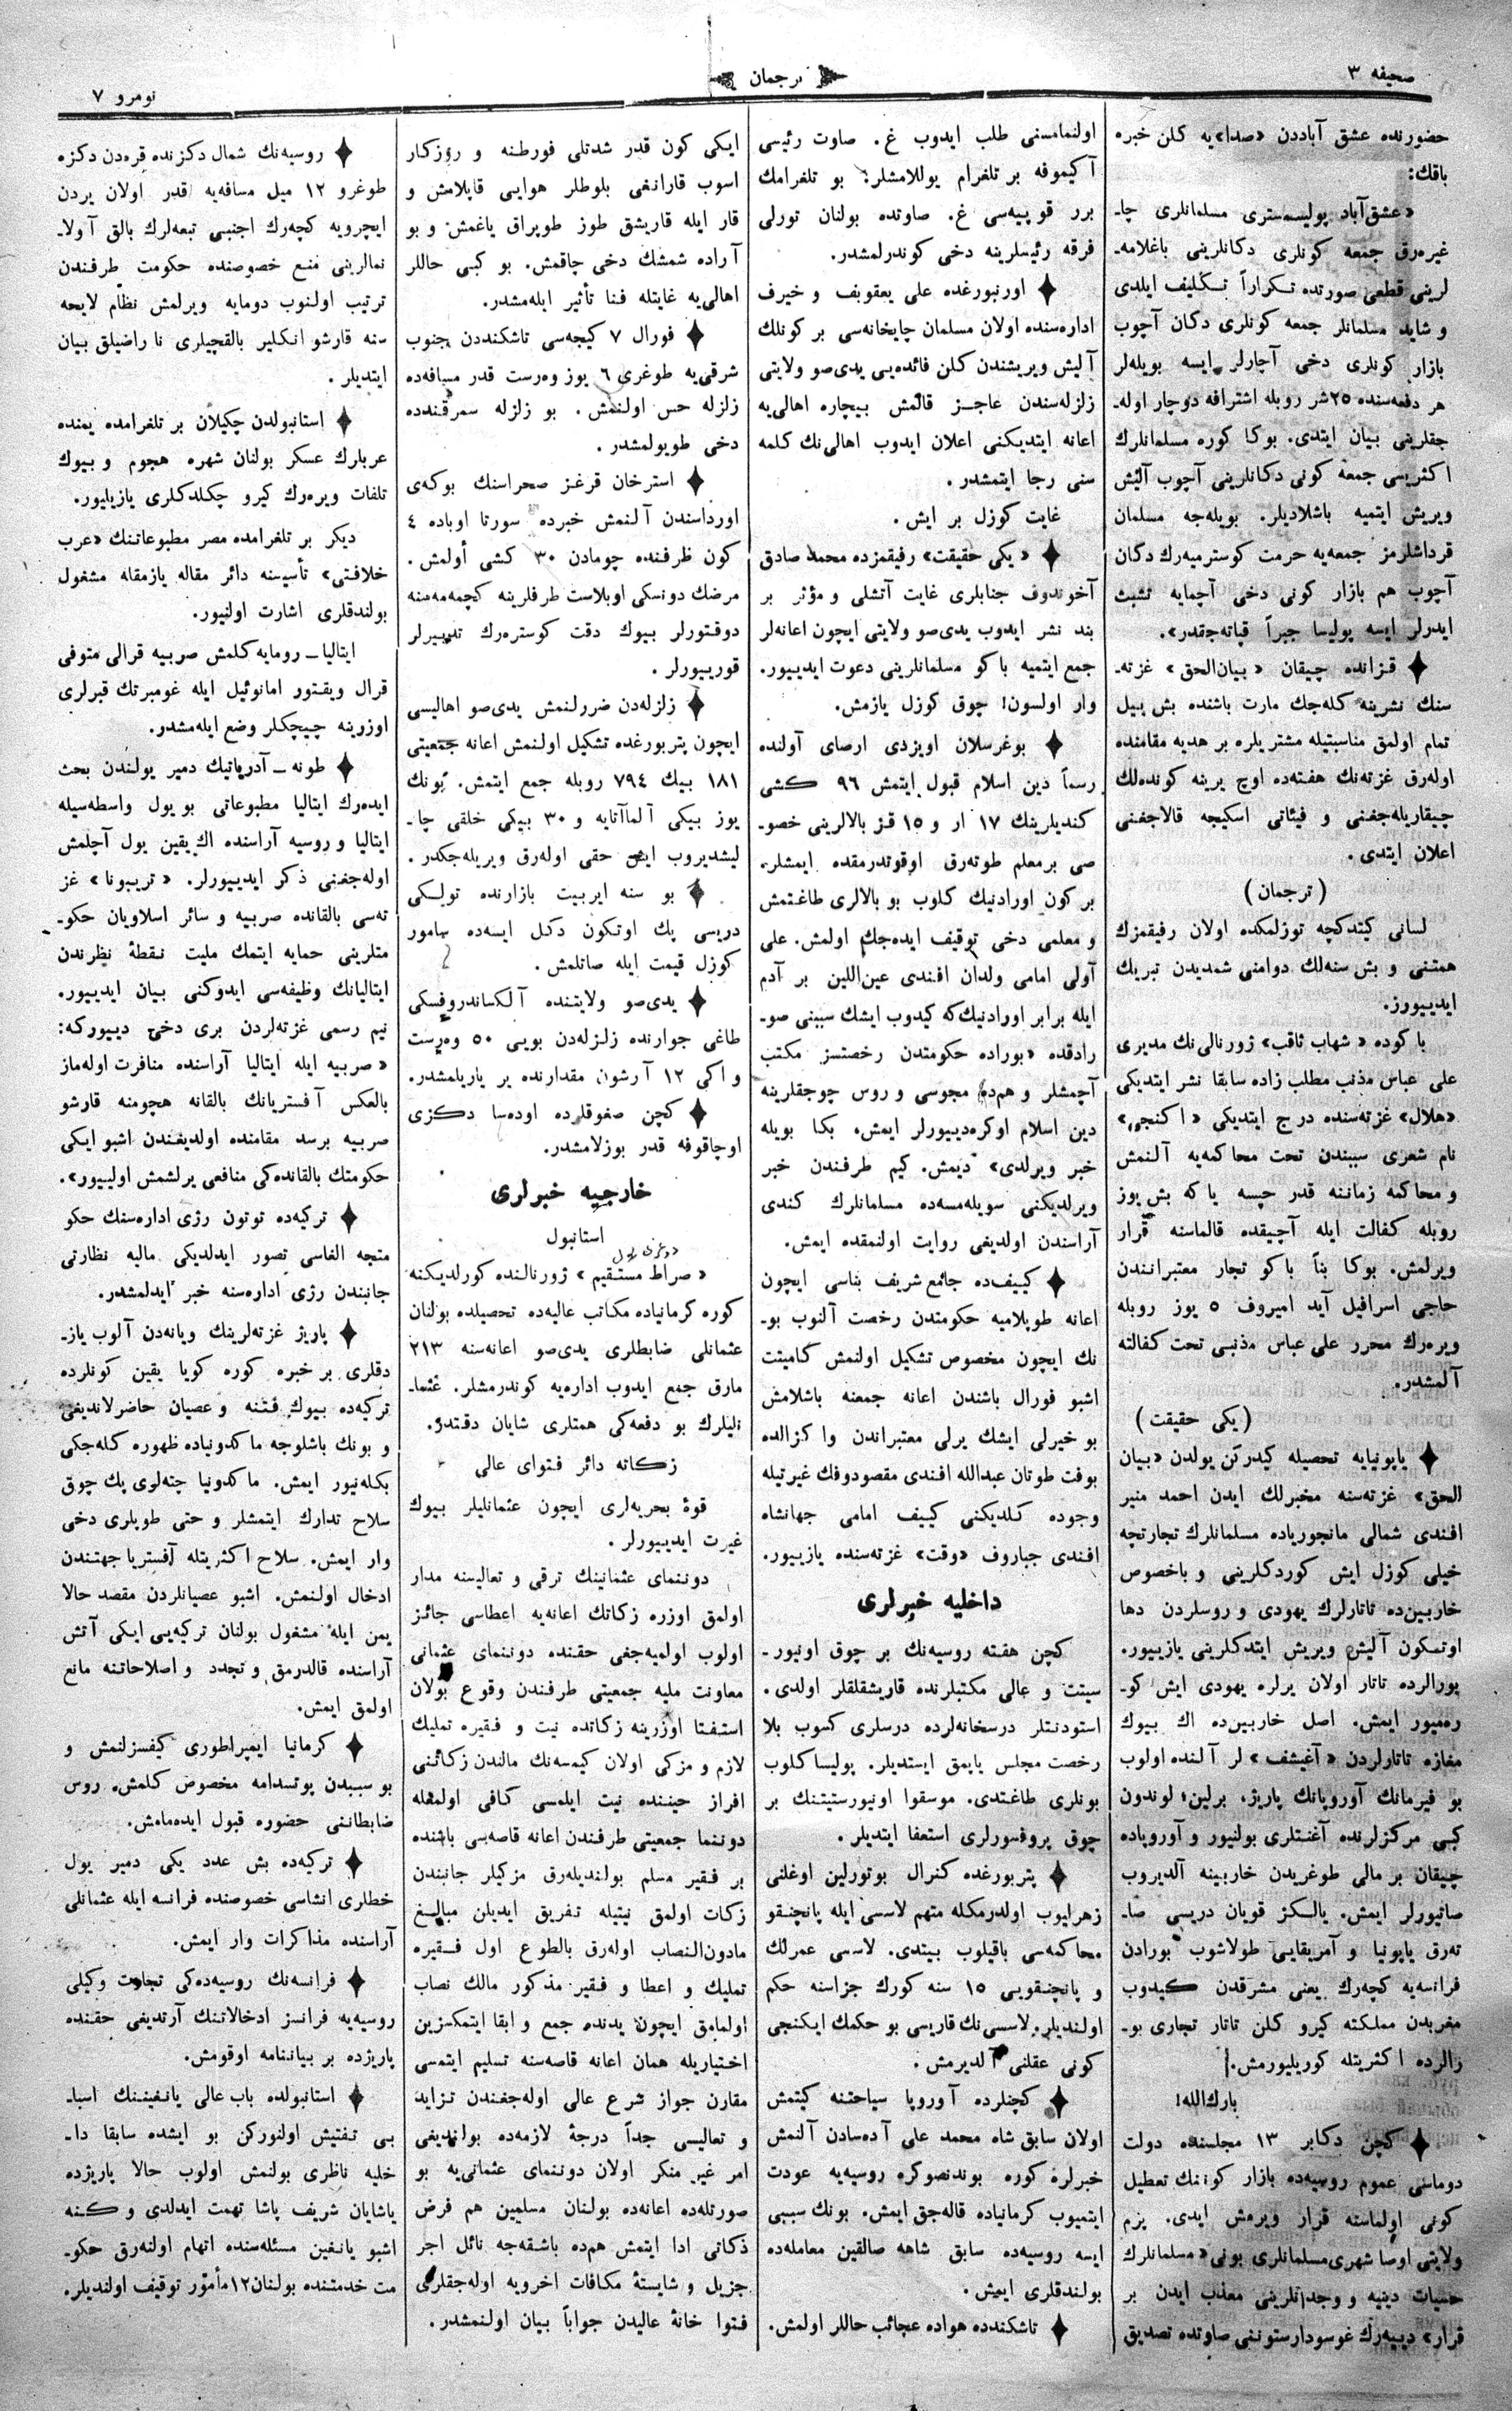 صحیفه ۳
ترجمان
نومرو ۷
حضورنده عشق آباددن «صدا»یه کلن خبره
باقك:
«عشق‌آباد پولیسمستری مسلمانلری چا-
غیره‌رق جمعه کونلری دکانلرینی باغلامه-
لرینی قطعی صورتده تکراراً تکلیف ایلدی
و شاید مسلمانلر جمعه کونلری دکان آچوب
بازار کونلری دخی آچارلر ایسه بویله‌لر
هر دفعه‌سنده ۲۵شر روبله اشترافه دوچار اوله-
جقلرینی بیان ایتدی. بوکا کوره مسلمانلرك
اکثریسی جمعه کونی دکانلرینی آچوب آلیش
ویریش ایتمیه باشلادیلر. بویله‌جه مسلمان
قرداشلرمز جمعه‌یه حرمت کوسترمیه‌رك دکان
آچوب هم بازار کونی دخی آچمایه تشبث
ایدرلر ایسه پولیسا جبراً قپاته‌جقدر».
قزانده چیقان «بیان‌الحق» غزته-
سنك نشرینه کله‌جك مارت باشنده بش ییل
تمام اولمق مناسبتیله مشتریلره بر هدیه مقامنده
اوله‌رق غزته‌نك هفته‌ده اوچ یرینه کونده‌لك
چیقاریله‌جغنی و فیئاتی اسکیجه قالاجغنی
اعلان ایتدی.
(ترجمان)
لسانی کیتدکچه توزلمکده اولان رفیقمزك
همتنی و بش سنه‌لك دوامنی شمدیدن تبریك
ایدییورز.
باکوده «شهاب ثاقب» ژورنالی‌نك مدیری
علی عباس مذنب مطلب زاده سابقا نشر ایتدیکی
«هلال» غزته‌سنده درج ایتدیکی «اکنجی»
نام شعری سببندن تحت محاکمه‌یه آلنمش
و محاکمه زماننه قدر حبسه یا که بش یوز
روبله کفالت ایله آچیقده قالماسنه قرار
ویرلمش. بوکا بناً باکو تجار معتبرانندن
حاجی اسرافیل آید امیروف ۵ یوز روبله
ویره‌رك محرر علی عباس مذنبی تحت کفالته
آلمشدر.
(یکی حقیقت)
یاپونیایه تحصیله کیدرکن یولدن «بیان
الحق» غزته‌سنه مخبرلك ایدن احمد منیر
افندی شمالی مانجوریاده مسلمانلرك تجارتچه
خیلی کوزل ایش کوردکلرینی و باخصوص
خاربین‌ده تاتارلرك یهودی و روسلردن دها
اوتکون آلیش ویریش ایتدکلرینی یازییور.
بورالرده تاتار اولان یرلره یهودی ایش کو-
ره‌میور ایمش. اصل خاربین‌ده اك بیوك
مغازه تاتارلردن «آغیشف» لر آلنده اولوب
بو فیرمانك آوروپانك پاریژ، برلین، لوندون
کبی مرکزلرنده آغنتلری بولنیور و آوروپاده
چیقان بر مالی طوغریدن خاربینه آلدیروب
صاتیورلر ایمش. یالکز قویان دریسی صا-
ته‌رق یاپونیا و آمریقایی طولاشوب بورادن
فرانسه‌یه کچه‌رك یعنی مشرقدن کیدوب
مغربدن مملکته کیرو کلن تاتار تجاری بو-
رالرده اکثریتله کوریلیورمش.
بارك‌الله!
کچن دکابر ۱۳ مجلسنده دولت
دوماسی عموم روسیه‌ده بازار کوننك تعطیل
کونی اولماسنه قرار ویرمش ایدی. پرم
ولایتی اوصا شهری مسلمانلری بونی «مسلمانلرك
حسیات دینیه و وجدانلرینی معذب ایدن بر
قرار» دییه‌رك غوسودارستوننی صاوتده تصدیق
اولنمامسنی طلب ایدوب غ. صاوت رئیسی
آکیموفه بر تلغرام یوللامشلر. بو تلغرامك
برر قوپیه‌سی غ. صاوتده بولنان تورلی
فرقه رئیسلرینه دخی کوندرلمشدر.
اورنبورغده علی یعقوبف و خیرف
اداره‌سنده اولان مسلمان چایخانه‌سی بر کونلك
آلیش ویریشندن کلن فائده‌یی یدی‌صو ولایتی
زلزله‌سندن عاجز قالمش بیچاره اهالی‌یه
اعانه ایتدیکنی اعلان ایدوب اهالی‌نك کلمه
سنی رجا ایتمشدر.
غایت کوزل بر ایش.
«یکی حقیقت» رفیقمزده محمد صادق
آخوندوف جنابلری غایت آتشلی و مؤثر بر
بند نشر ایدوب یدی‌صو ولایتی ایچون اعانه‌لر
جمع ایتمیه باکو مسلمانلرینی دعوت ایدییور.
وار اولسون! چوق کوزل یازمش.
بوغرسلان اویزدی ارصای آولنده
رسماً دین اسلام قبول ایتمش ۹۶ کشی
کندیلرینك ۱۷ ار و ۱۵ قز بالالرینی خصو-
صی برمعلم طوته‌رق اوقوتدرمقده ایمشلر.
بر کون اورادنیك کلوب بو بالالری طاغتمش
و معلمی دخی توقیف ایده‌جك اولمش. علی
آولی امامی ولدان افندی عین‌اللین بر آدم
ایله برابر اورادنیك‌که کیدوب ایشك سببنی صو-
رادقده «بوراده حکومتدن رخصتسز مکتب
آچمشلر و هم‌ده مجوسی و روس چوجقلرینه
دین اسلام اوکره‌دییورلر ایمش، بکا بویله
خبر ویرلدی» دیمش. کیم طرفندن خبر
ویرلدیکنی سویله‌مسه‌ده مسلمانلرك کندی
آراسندن اولدیغی روایت اولنمقده ایمش.
کییف‌ده جامع شریف بناسی ایچون
اعانه طوپلامیه حکومتدن رخصت آلنوب بو-
نك ایچون مخصوص تشکیل اولنمش کامیتت
اشبو فورال باشندن اعانه جمعنه باشلامش
بو خیرلی ایشك یرلی معتبراندن واکزالده
بوفت طوتان عبدالله افندی مقصودوفك غیرتیله
وجوده کلدیکنی کییف امامی جهانشاه
افندی جباروف «وقت» غزته‌سنده یازییور.
داخلیه خبرلری
کچن هفته روسیه‌نك بر چوق اونیور-
سیتت و عالی مکتبلرنده قاریشقلقلر اولدی.
استودنتلر درسخانه‌لرده درسلری کسوب بلا
رخصت مجلس یاپمق ایستدیلر. پولیسا کلوب
بونلری طاغتدی. موسقوا اونیورستیتنك بر
چوق پروفسورلری استعفا ایتدیلر.
پتربورغده کنرال بوتورلین اوغلنی
زهرلیوب اولدرمکله متهم لاسسی ایله پانچنقو
محاکمه‌سی باقیلوب بیتدی. لاسسی عمرلك
و پانچنقویی ۱۵ سنه کورك جزاسنه حکم
اولندیلر. لاسسی‌نك قاریسی بو حکمك ایکنجی
کونی عقلنی آلدیرمش.
کچنلرده آوروپا سیاحتنه کیتمش
اولان سابق شاه محمد علی آده‌سادن آلنمش
خبرلره کوره بوندنصوکره روسیه‌یه عودت
ایتمیوب کرمانیاده قاله‌جق ایمش. بونك سببی
ایسه روسیه‌ده سابق شاهه صالقین معامله‌ده
بولندقلری ایمش.
تاشکندده هواده عجائب حاللر اولمش.
ایکی کون قدر شدتلی فورطنه و روزکار
اسوب قارانغی بلوطلر هوایی قاپلامش و
قار ایله قاریشق طوز طوپراق یاغمش و بو
آراده شمشك دخی چاقمش. بو کبی حاللر
اهالی‌یه غایتله فنا تأثیر ایله‌مشدر.
فورال ۷ کیجه‌سی تاشکنددن جنوب
شرقی‌یه طوغری ٦ یوز وه‌رست قدر مسافه‌ده
زلزله حس اولنمش. بو زلزله سمرقندده
دخی طویولمشدر.
استرخان قرغز صحراسنك بوکه‌ی
اورداسندن آلنمش خبرده سورتا اوباده ٤
کون ظرفنده چومادن ۳۰ کشی أولمش.
مرضك دونسکی اوبلاست طرفلرینه کچمه‌مه‌سنه
دوقتورلر بیوك دقت کوستره‌رك تدبیرلر
قوریبورلر.
زلزله‌دن ضررلنمش یدی‌صو اهالیسی
ایچون پتربورغده تشکیل اولنمش اعانه جمعیتی
۱۸۱ بیك ۷۹٤ روبله جمع ایتمش. بونك
یوز بیکی آلماآتایه و ۳۰ بیکی خلقی چا-
لیشدیروب ایش حقی اوله‌رق ویریله‌جکدر.
بو سنه ایربیت بازارنده تولکی
دریسی پك اوتکون دکل ایسه‌ده سامور
کوزل قیمت ایله صاتلمش.
یدی‌صو ولایتنده آلکساندروفسکی
طاغی جوارنده زلزله‌دن بویی ۵۰ وه‌رست
و اکی ۱۲ آرشون مقدارنده یر یاریلمشدر.
کچن صغوقلرده اوده‌سا دکزی
اوچاقوفه قدر بوزلامشدر.
خارجیه خبرلری
استانبول
«صراط مستقیم» ژورنالنده کورلدیکنه
کوره کرمانیاده مکاتب عالیه‌ده تحصیلده بولنان
عثمانلی ضابطلری یدی‌صو اعانه‌سنه ۲۱۳
مارق جمع ایدوب اداره‌یه کوندرمشلر. عثما-
نلیلرك بو دفعه‌کی همتلری شایان دقتدر.
زکاته دائر فتوای عالی
قوۀ بحریه‌لری ایچون عثمانلیلر بیوك
غیرت ایدییورلر.
دوننمای عثمانینك ترقی و تعالیسنه مدار
اولمق اوزره زکاتك اعانه‌یه اعطاسی جائز
اولوب اولمیه‌جغی حقنده دوننمای عثمانی
معاونت ملیه جمعیتی طرفندن وقوع بولان
استفتا اوزرینه زکاتده نیت و فقیره تملیك
لازم و مزکی اولان کیمسه‌نك مالندن زکاتنی
افراز حیننده نیت ایلمسی کافی اولمغله
دوننما جمعیتی طرفندن اعانه قاصه‌سی باشنده
بر فقیر مسلم بولندیله‌رق مزکیلر جانبندن
زکات اولمق نیتیله تفریق ایدیلن مبالغ
مادون‌النصاب اوله‌رق بالطوع اول فقیره
تملیك و اعطا و فقیر مذکور مالك نصاب
اولمامق ایچون یدنده جمع و ابقا ایتمکسزین
اختیاریله همان اعانه قاصه‌سنه تسلیم ایتمسی
مقارن جواز شرع عالی اوله‌جغندن تزاید
و تعالیسی جداً درجۀ لازمه‌ده بولندیغی
امر غیر منکر اولان دوننمای عثمانی‌یه بو
صورتله‌ده اعانه‌ده بولنان مسلمین هم فرض
ذکاتی ادا ایتمش هم‌ده باشقه‌جه نائل اجر
جزیل و شایستۀ مکافات اخرویه اوله‌جقلری
فتوا خانۀ عالیدن جواباً بیان اولنمشدر.
روسیه‌نك شمال دکزنده قره‌دن دکزه
طوغرو ۱۲ میل مسافه‌یه قدر اولان یردن
ایچرویه کچه‌رك اجنبی تبعه‌لرك بالق آولا-
نمالرینی منع خصوصنده حکومت طرفندن
ترتیب اولنوب دومایه ویرلمش نظام لایحه
سنه قارشو انکلیر بالقچیلری نا راضیلق بیان
ایتدیلر.
استانبولدن چکیلان بر تلغرامده یمنده
عربلرك عسکر بولنان شهره هجوم و بیوك
تلفات ویره‌رك کیرو چکلدکلری یازیلیور.
دیکر بر تلغرامده مصر مطبوعاتنك «عرب
خلافتی» تأسیسنه دائر مقاله یازمقله مشغول
بولندقلری اشارت اولنیور.
ایتالیا ـ رومایه کلمش صربیه قرالی متوفی
قرال ویقتور امانوئیل ایله غومبرتك قبرلری
اوزرینه چیچکلر وضع ایله‌مشدر.
طونه ـ آدریاتیك دمیر یولندن بحث
ایده‌رك ایتالیا مطبوعاتی بو یول واسطه‌سیله
ایتالیا و روسیه آراسنده اك یقین یول آچلمش
اوله‌جغنی ذکر ایدییورلر. «تریبونا» غز
ته‌سی بالقانده صربیه و سائر اسلاویان حکو-
متلرینی حمایه ایتمك ملیت نقطۀ نظرندن
ایتالیانك وظیفه‌سی ایدوکنی بیان ایدییور.
نیم رسمی غزته‌لردن بری دخی دییورکه:
«صربیه ایله ایتالیا آراسنده منافرت اوله‌ماز
بالعکس آفستریانك بالقانه هجومنه قارشو
صربیه برسد مقامنده اولدیغندن اشبو ایکی
حکومتك بالقانده‌کی منافعی یرلشمش اولییور».
ترکیه‌ده توتون رژی اداره‌سنك حکو
متجه الغاسی تصور ایدلدیکی مالیه نظارتی
جانبندن رژی اداره‌سنه خبر ایدلمشدر.
پاریژ غزته‌لرینك ویانه‌دن آلوب یاز-
دقلری بر خبره کوره کویا یقین کونلرده
ترکیه‌ده بیوك فتنه و عصیان حاضرلاندیغی
و بونك باشلوجه ماکدونیاده ظهوره کله‌جکی
بکله‌نیور ایمش. ماکدونیا چته‌لری پك چوق
سلاح تدارك ایتمشلر و حتی طوپلری دخی
وار ایمش. سلاح اکثریتله آفستریا جهتندن
ادخال اولنمش. اشبو عصیانلردن مقصد حالا
یمن ایله مشغول بولنان ترکیه‌یی ایکی آتش
آراسنده قالدرمق و تجدد و اصلاحاتنه مانع
اولمق ایمش.
کرمانیا ایمپراطوری کیفسزلنمش و
بو سببدن پوتسدامه مخصوص کلمش روس
ضابطاننی حضوره قبول ایده‌مامش.
ترکیه‌ده بش عدد یکی دمیر یول
خطلری انشاسی خصوصنده فرانسه ایله عثمانلی
آراسنده مذاکرات وار ایمش.
فرانسه‌نك روسیه‌ده‌کی تجارت وکیلی
روسیه‌یه فرانسز ادخالاتنك آرتدیغی حقنده
پاریژده بر بیاننامه اوقومش.
استانبولده باب عالی یانغیننك اسبا-
بی تفتیش اولنورکن بو ایشده سابقا دا-
خلیه ناظری بولنمش اولوب حالا پاریژده
یاشایان شریف پاشا تهمت ایدلدی و کنه
اشبو یانغین مسئله‌سنده اتهام اولنه‌رق حکو-
مت خدمتنده بولنان ۱۲ مأمور توقیف اولندیلر.